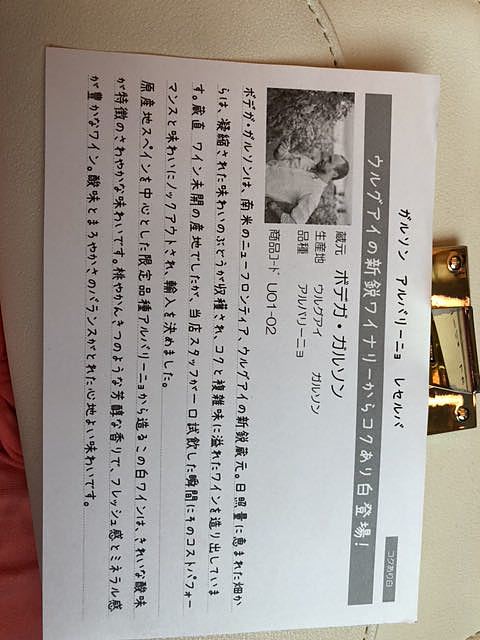 ガルソン アルバリーニョ レセルバ
コクあり白
ウルグアイの新鋭ワイナリーからコクあり白登場！
蔵元 ボデガ・ガルソン
生産地 ウルグアイ ガルソン
品種 アルバリーニョ
商品コード U01-02
ボデガ・ガルソンは、南米のニューフロンティア、ウルグアイの新鋭蔵元。日照量に恵まれた畑か
らは、凝縮された味わいのぶどうが収穫され、コクと複雑味に溢れたワインを造り出していま
す。蔵直 ワイン未開の産地でしたが、当店スタッフが一口試飲した瞬間にそのコストパフォー
マンスと味わいにノックアウトされ、輸入を決めました。
原産地スペインを中心とした限定品種アルバリーニョから造るこの白ワインは、きれいな酸味
が特徴のさわやかな味わいです。桃やかんきつのような芳醇な香りで、フレッシュ感とミネラル感
が豊かなワイン。酸味とまろやかさのバランスがとれた心地よい味わいです。